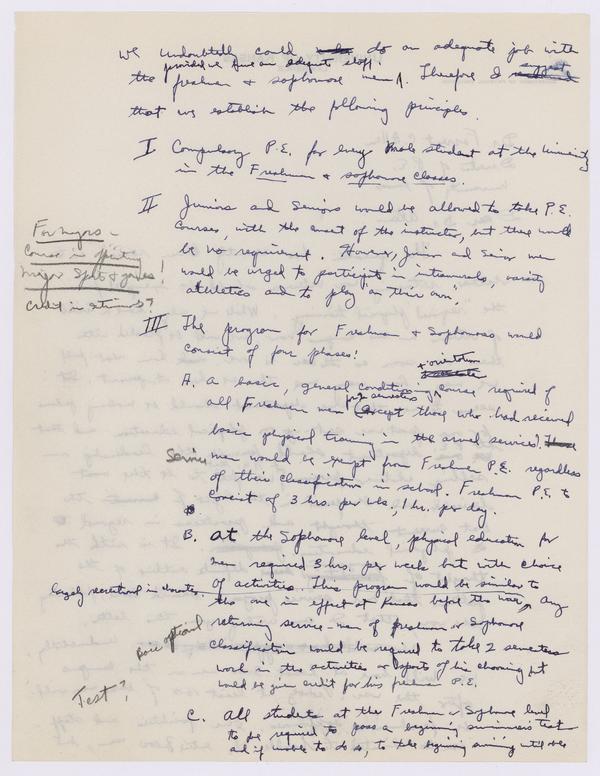 We undoubtedly could do an adequate job with
provided we have an adequate staff.
the freshman & sophomore men. Therefore I suggest
that we establish the following principles.
I Compulsory P.E. for every male student at the University
in the Freshman & sophomore classes.
II Juniors and Seniors would be allowed to take P.E.
courses, with the consent of the instructor, but there would
be no requirement. However, Junior and Senior men
would be urged to participate in intramurals, varsity
athletics and to play "on their own".
For majors -
Course in officiating
major Sports & games!
Credit in
III The program for Freshmen & Sophomores would
consist of four phases:
+ orientation
A. A basic, general conditioning course required of
all Freshmen men for 2 semesters (except those who had received
basic physical training in the armed services).
Service men would be exempt from Freshman P.E. regardless
of their classification in school. Freshman P.E. to
consist of 3 hrs. per wk., 1 hr. per day.
B. At the Sophomore level, physical education for
men required 3 hrs. per week but with choice
of activities. This program would be similar to
largely recreational in character.
the one in effect at Kansas before the war. Any
returning service-man of freshman or Sophomore
classification would be required to take 2 semesters
work in the activities or sports of his choosing but
would be given credit for his freshman P.E.
optional
Test?
C. All students at the Freshman or Sophomore level
to be required to pass a beginning swimmer's test
and if unable to do so, to take beginning swimming until able